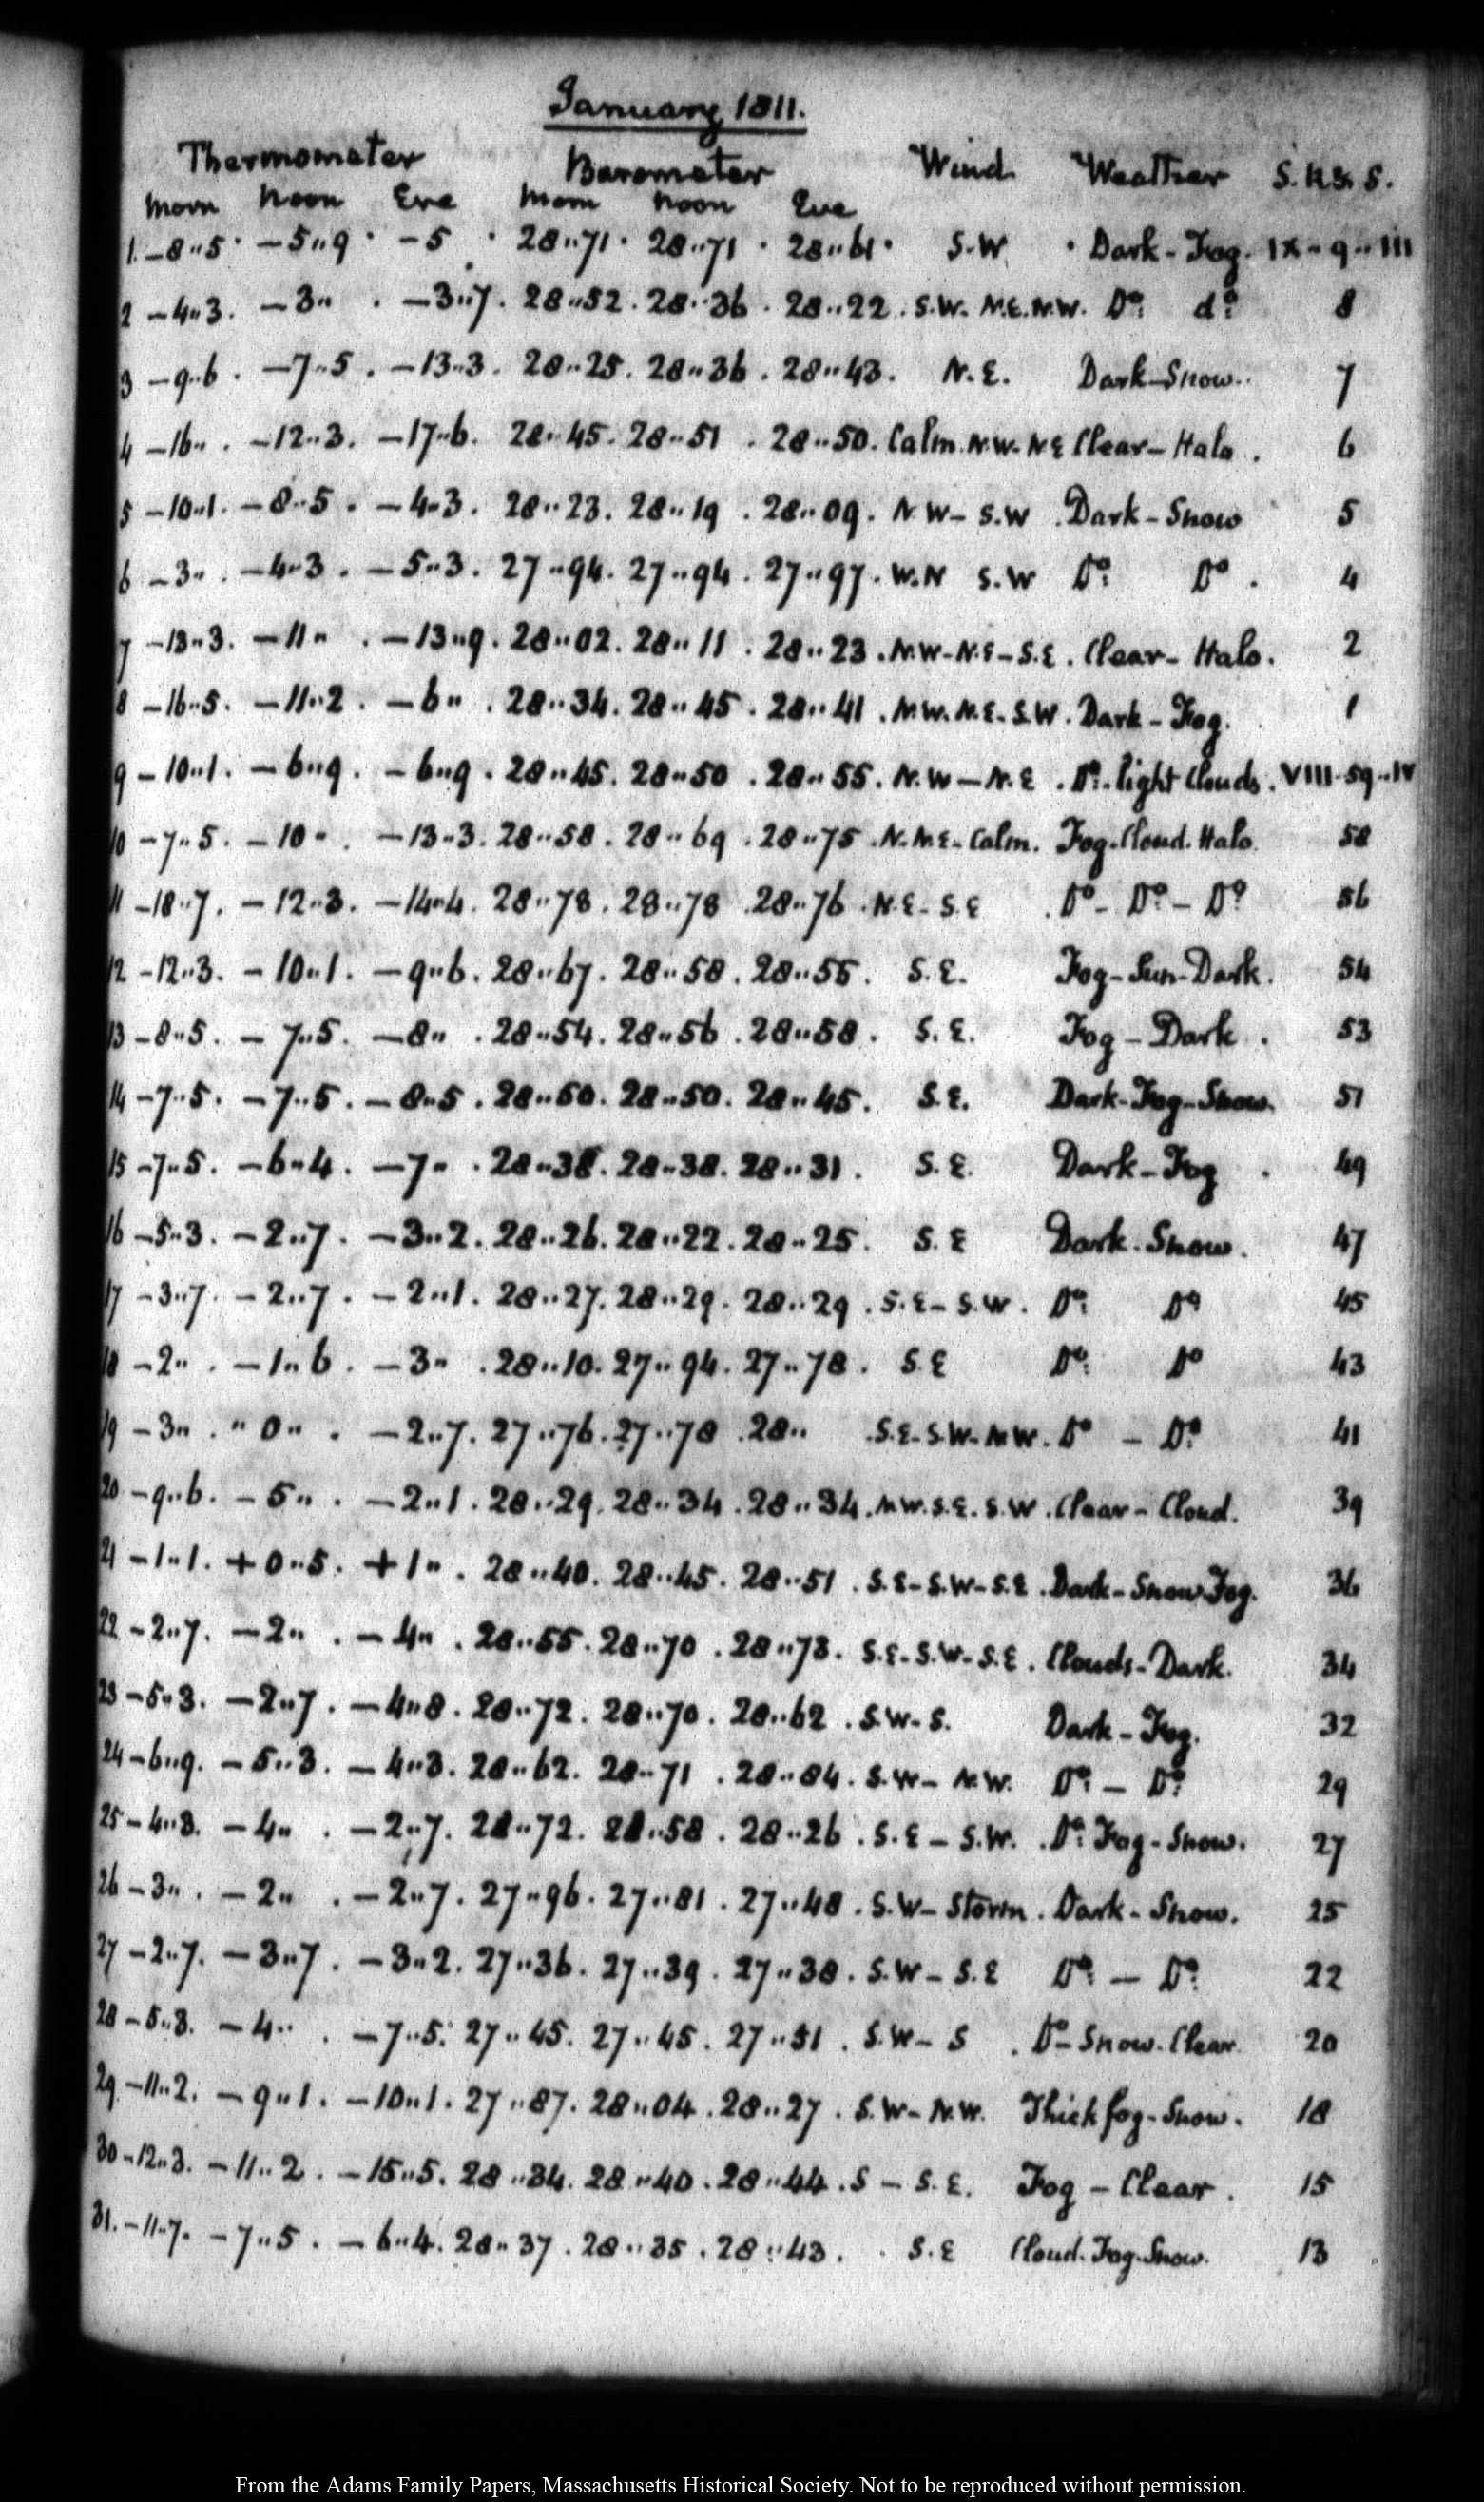 January 1811.
Thermometer Barometer Wind Weather S. R & S.
Morn Noon Eve Morn Noon Eve
1. -8..5 · -5..9 · -5 · 28..71 · 28..71 · 28..61 · S.W · Dark - Fog. IX - 9 .. III
2 -4..3. -3.. . -3..7. 28..52. 28..36. 28..22. S.W. N.E. N.W. Do. do. 8
3 -9..6. -7..5. -13..3. 28..25. 28..36. 28..43. N.E. Dark-Snow. 7
4 -16.. . -12..3. -17..6. 28..45. 28..51. 28..50. Calm. N.W. N.E Clear - Halo. 6
5 -10..1. -8..5. -4..3. 28..23. 28..19. 28..09. N.W - S.W. Dark - Snow 5
6 -3.. . -4..3. -5..3. 27..94. 27..94. 27..97. W.N S.W Do. Do. 4
7 -13..3. -11.. . -13..9. 28..02. 28..11. 28..23. N.W-N.E-S.E. Clear - Halo. 2
8 -16..5. -11..2. -6.. . 28..34. 28..45. 28..41. N.W. N.E. S.W. Dark - Fog. 1
9 -10..1. -6..9. -6..9. 28..45. 28..50. 28..55. N.W - N.E. Do. light Clouds. VIII-59..IV
10 -7..5. -10.. . -13..3. 28..58. 28..69. 28..75. N. N.E. Calm. Fog. Cloud. Halo. 58
11 -18..7. -12..3. -14..4. 28..78. 28..78. 28..76. N.E - S.E. Do - Do. - Do. 56
12 -12..3. -10..1. -9..6. 28..67. 28..58. 28..55. S.E. Fog - Sun - Dark. 54
13 -8..5. -7..5. -8.. . 28..54. 28..56. 28..58. S.E. Fog - Dark. 53
14 -7..5. -7..5. -8..5. 28..50. 28..50. 28..45. S.E. Dark-Fog-Snow. 51
15 -7..5. -6..4. -7.. . 28..38. 28..38. 28..31. S.E. Dark-Fog. 49
16 -5..3. -2..7. -3..2. 28..26. 28..22. 28..25. S.E Dark. Snow. 47
17 -3..7. -2..7. -2..1. 28..27. 28..29. 28..29. S.E - S.W. Do. Do 45
18 -2.. . -1..6. -3.. . 28..10. 27..94. 27..78. S.E Do. Do 43
19 -3.. . " 0.. . -2..7. 27..76. 27..78. 28.. . S.E. S.W. N.W. Do - Do. 41
20 -9..6. -5.. . -2..1. 28..29. 28..34. 28..34. N.W. S.E. S.W. Clear - Cloud. 39
21 -1..1. +0..5. +1.. . 28..40. 28..45. 28..51. S.E-S.W-S.E. Dark-Snow Fog. 36
22 -2..7. -2.. . -4.. . 28..55. 28..70. 28..73. S.E. S.W-S.E. Clouds-Dark. 34
23 -5..3. -2..7. -4..8. 28..72. 28..70. 28..62. S.W-S. Dark-Fog. 32
24 -6..9. -5..3. -4..3. 28..62. 28..71. 28..84. S.W - N.W. Do. - Do. 29
25 -4..8. -4.. . -2..7. 28..72. 28..58. 28..26. S.E - S.W. Do. Fog-Snow. 27
26 -3.. . -2.. . -2..7. 27..96. 27..81. 27..48. S.W - Storm. Dark-Snow. 25
27 -2..7. -3..7. -3..2. 27..36. 27..39. 27..38. S.W - S.E Do. - Do. 22
28 -5..3. -4.. . -7..5. 27..45. 27..45. 27..51. S.W - S. Do - Snow. Clear. 20
29 -11..2. -9..1. -10..1. 27..87. 28..04. 28..27. S.W - N.W. Thick fog-Snow. 18
30 -12..3. -11..2. -15..5. 28..34. 28..40. 28..44. S - S.E. Fog - Clear. 15
31. -11..7. -7..5. -6..4. 28..37. 28..35. 28..43. S.E Cloud. Fog. Snow. 13
From the Adams Family Papers, Massachusetts Historical Society. Not to be reproduced without permission.